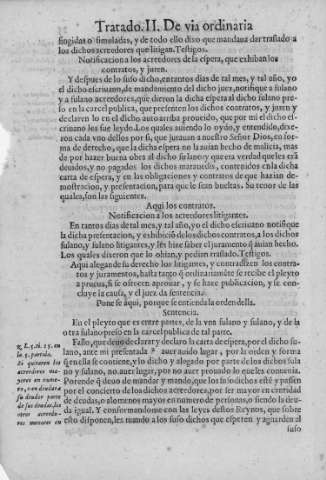 Tratado. II. De via ordinaria
fingidas o simuladas, y de todo ello dixo que mandaua dar traslado a
los dichos acreedores que litigan. Testigos.
Notificacion a los acreedores de la espera, que exhiban los
contratos, y juren.
Y despues de lo suso dicho, en tantos dias de tal mes, y tal año, yo
el dicho escriuano, de mandamiento del dicho juez, notifique a fulano
y a fulano acreedores, que dieron la dicha espera al dicho fulano pre-
so en la carcel publica, que presenten los dichos contratos, y juren y
declaren lo en el dicho auto arriba proueido, que por mi el dicho es-
criuano les fue leydo. Los quales auiendo lo oydo, y entendido, dixe-
ron cada vno dellos por si, que jurauan a nuestro Señor Dios, en for-
ma de derecho, que la dicha espera no la auian hecho de malicia, mas
de por hazer buena obra al dicho fulano: y que era verdad que les era
deudas, y no pagados los dichos marauedis, contenidos en la dicha
carta de espera, y en las obligaciones y contratos de que hazian de-
mostracion, y presentacion, para que le sean bueltas. Su tenor de las
quales, son las siguientes.
Aqui los contratos.
Notificacion a los acreedores litigantes.
En tantos dias de tal mes, y tal año, yo el dicho escriuano notifique
la dicha presentacion, y exhibicion de los dichos contratos, a los dichos
fulano y fulano litigantes, y les hize saber el juramento q̃ auian hecho.
Los quales dixeron que lo ohian, y pedian traslado. Testigos.
Aqui alegan de su derecho los litigantes, y contradizen los contra-
tos y juramentos, hasta tanto q̃ ordinariamẽte se recibe el pleyto
a prueua, si se ofrecen aprouar, y se haze publicacion, y se con-
cluye la causa, y el juez da sentencia.
Pone se aqui, porque se entienda la orden della.
Sentencia.
En el pleyto que es entre partes, de la vna fulano y fulano, y de la
otra fulano preso en la carcel publica de tal parte.
Fallo, que deuo declarar y declaro la carta de espera, por el dicho fu-
lano, ante mi presentada auer auido lugar, por la orden y forma
q̃ en ella se contiene, y lo dicho y alegado por parte de los dichos fula
no y fulano, no auer lugar, por no auer prouado lo que les conuenia.
Por ende q̃ deuo de mandar y mando, que los susodichos estẽ y passen
por el concierto de los dichos acreedores, por ser mayor en cantidad
de deudas, o alomenos mayor en numero de personas, o siendo la deu-
da igual. Y conformandome con las leyes destos Reynos, que sobre
esto disponen, les mando a los suso dichos que esperen y aguarden al
suso
L. 5. tit. 15. en
la 5. partida.
de quitaren los
acreedores ma-
yores en nume-
ro,
su deudor parte
de sus deudas, los
otros acreedo-
res menores en